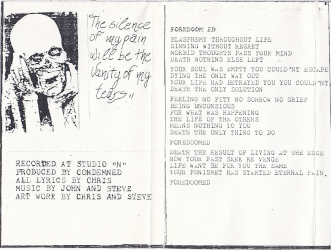 "The silence
of my pain
will be the
vanity of my
tears"
RECORDED AT STUDIO "N"
PRODUCED BY CONDEMNED
ALL LYRICS BY CHRIS
MUSIC BY JOHN AND STEVE
ART WORK BY CHRIS AND STEVE
FOREDOOM ED
BLASPHEMY THROUGHOUT LIFE
SINNING WITHOUT REGRET
MORBID THOUGHTS PASS YOUR MIND
DEATH NOTHING ELSE LEFT
YOUR SOUL WAS EMPTY YOU COULD'NT ESCAPE
DYING THE ONLY WAY OUT
YOUR LIFE HAD BETRAYED YOU YOU COULD'NT
DEATH THE ONLY SOLUTION
FEELING NO PITY NO SORROW NO GRIEF
BEING UNCONSIOUS
FOR WHAT WAS HAPPENING
THE LIFE OF THE OTHERS
MEANS NOTHING TO YOU
DEATH THE ONLY THING TO DO
FOREDOOMED
DEATH THE RESULT OF LIVING AT THE EDGE
NOW YOUR PAST SEEK RE VENGE
LIFE WANT BE FOR YOU THE SAME
YOUR PUNISMET HAS STARTED ETERNAL PAIN.
FOREDOOMED